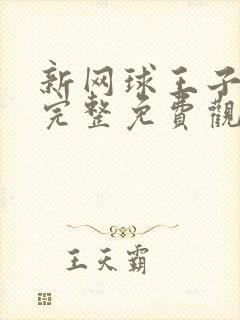 新网球王子
完整免費觀
王天霸